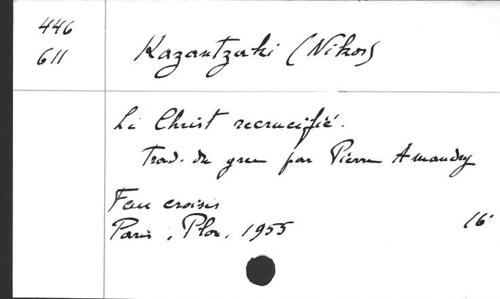 446
611
Kazantzaki (Nikos)
Le Christ recrucifié.
Trad. du grec par Pierre Amandry
Feux croisés
Paris, Plon, 1955
16°